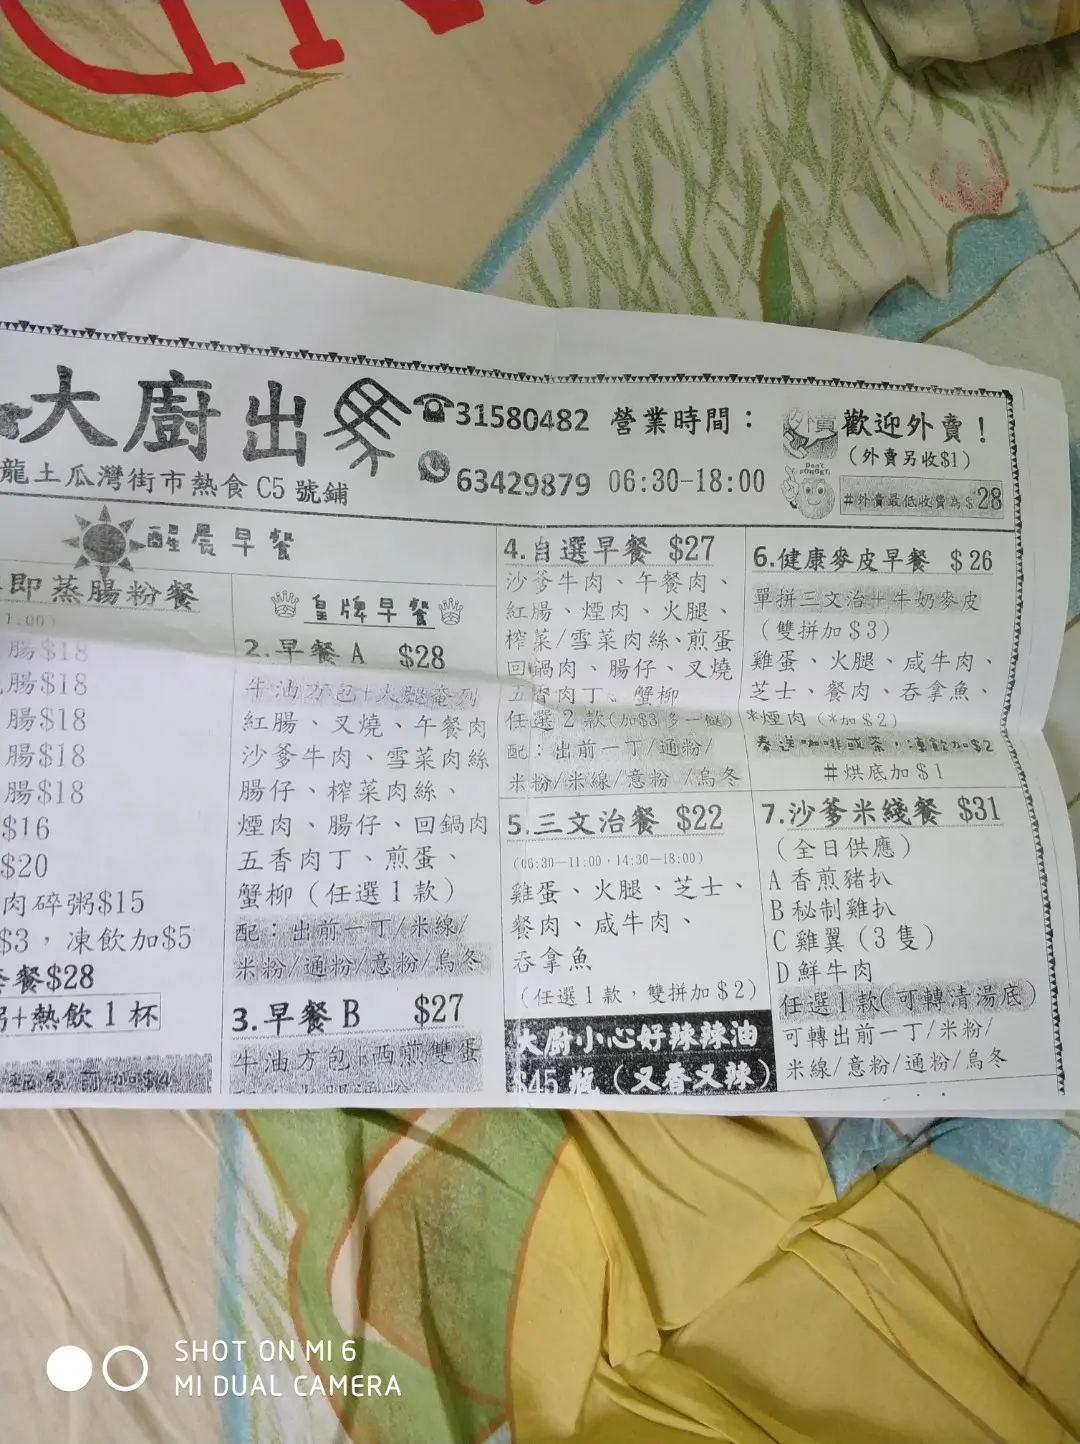 大廚出
31580482
63429879
營業時間：
06:30-18:00
外賣
歡迎外賣！
(外賣另收$1)
Don't
FORGET!
#外賣最低收費為$28
龍土瓜灣街市熱食C5號鋪
醒晨早餐
即蒸腸粉餐
1:00)
腸$18
腸$18
腸$18
腸$18
腸$18
$16
$20
肉碎粥$15
$3，凍飲加$5
餐$28
+熱飲1杯
皇牌早餐
2.早餐A $28
牛油方包+火腿奄列
紅腸、叉燒、午餐肉
沙爹牛肉、雪菜肉絲
腸仔、榨菜肉絲、
煙肉、腸仔、回鍋肉
五香肉丁、煎蛋、
蟹柳(任選1款)
配：出前一丁/米線/
米粉/通粉/意粉/烏冬
3.早餐B $27
牛油方包+西煎雙蛋
4.自選早餐 $27
沙爹牛肉、午餐肉、
紅腸、煙肉、火腿、
榨菜/雪菜肉絲、煎蛋
回鍋肉、腸仔、叉燒
五香肉丁、蟹柳
任選2款(加$3多一餸)
配：出前一丁/通粉/
米粉/米線/意粉/烏冬
5.三文治餐 $22
(06:30—11:00，14:30—18:00)
雞蛋、火腿、芝士、
餐肉、咸牛肉、
吞拿魚
(任選1款，雙拼加$2)
大廚小心好辣辣油
$45瓶(又香又辣)
6.健康麥皮早餐 $26
單拼三文治+牛奶麥皮
(雙拼加$3)
雞蛋、火腿、咸牛肉、
芝士、餐肉、吞拿魚、
*煙肉(*加$2)
奉送咖啡或茶，凍飲加$2
#烘底加$1
7.沙爹米綫餐 $31
(全日供應)
A香煎豬扒
B秘制雞扒
C雞翼(3隻)
D鮮牛肉
任選1款(可轉清湯底)
可轉出前一丁/米粉/
米線/意粉/通粉/烏冬
SHOT ON MI 6
MI DUAL CAMERA